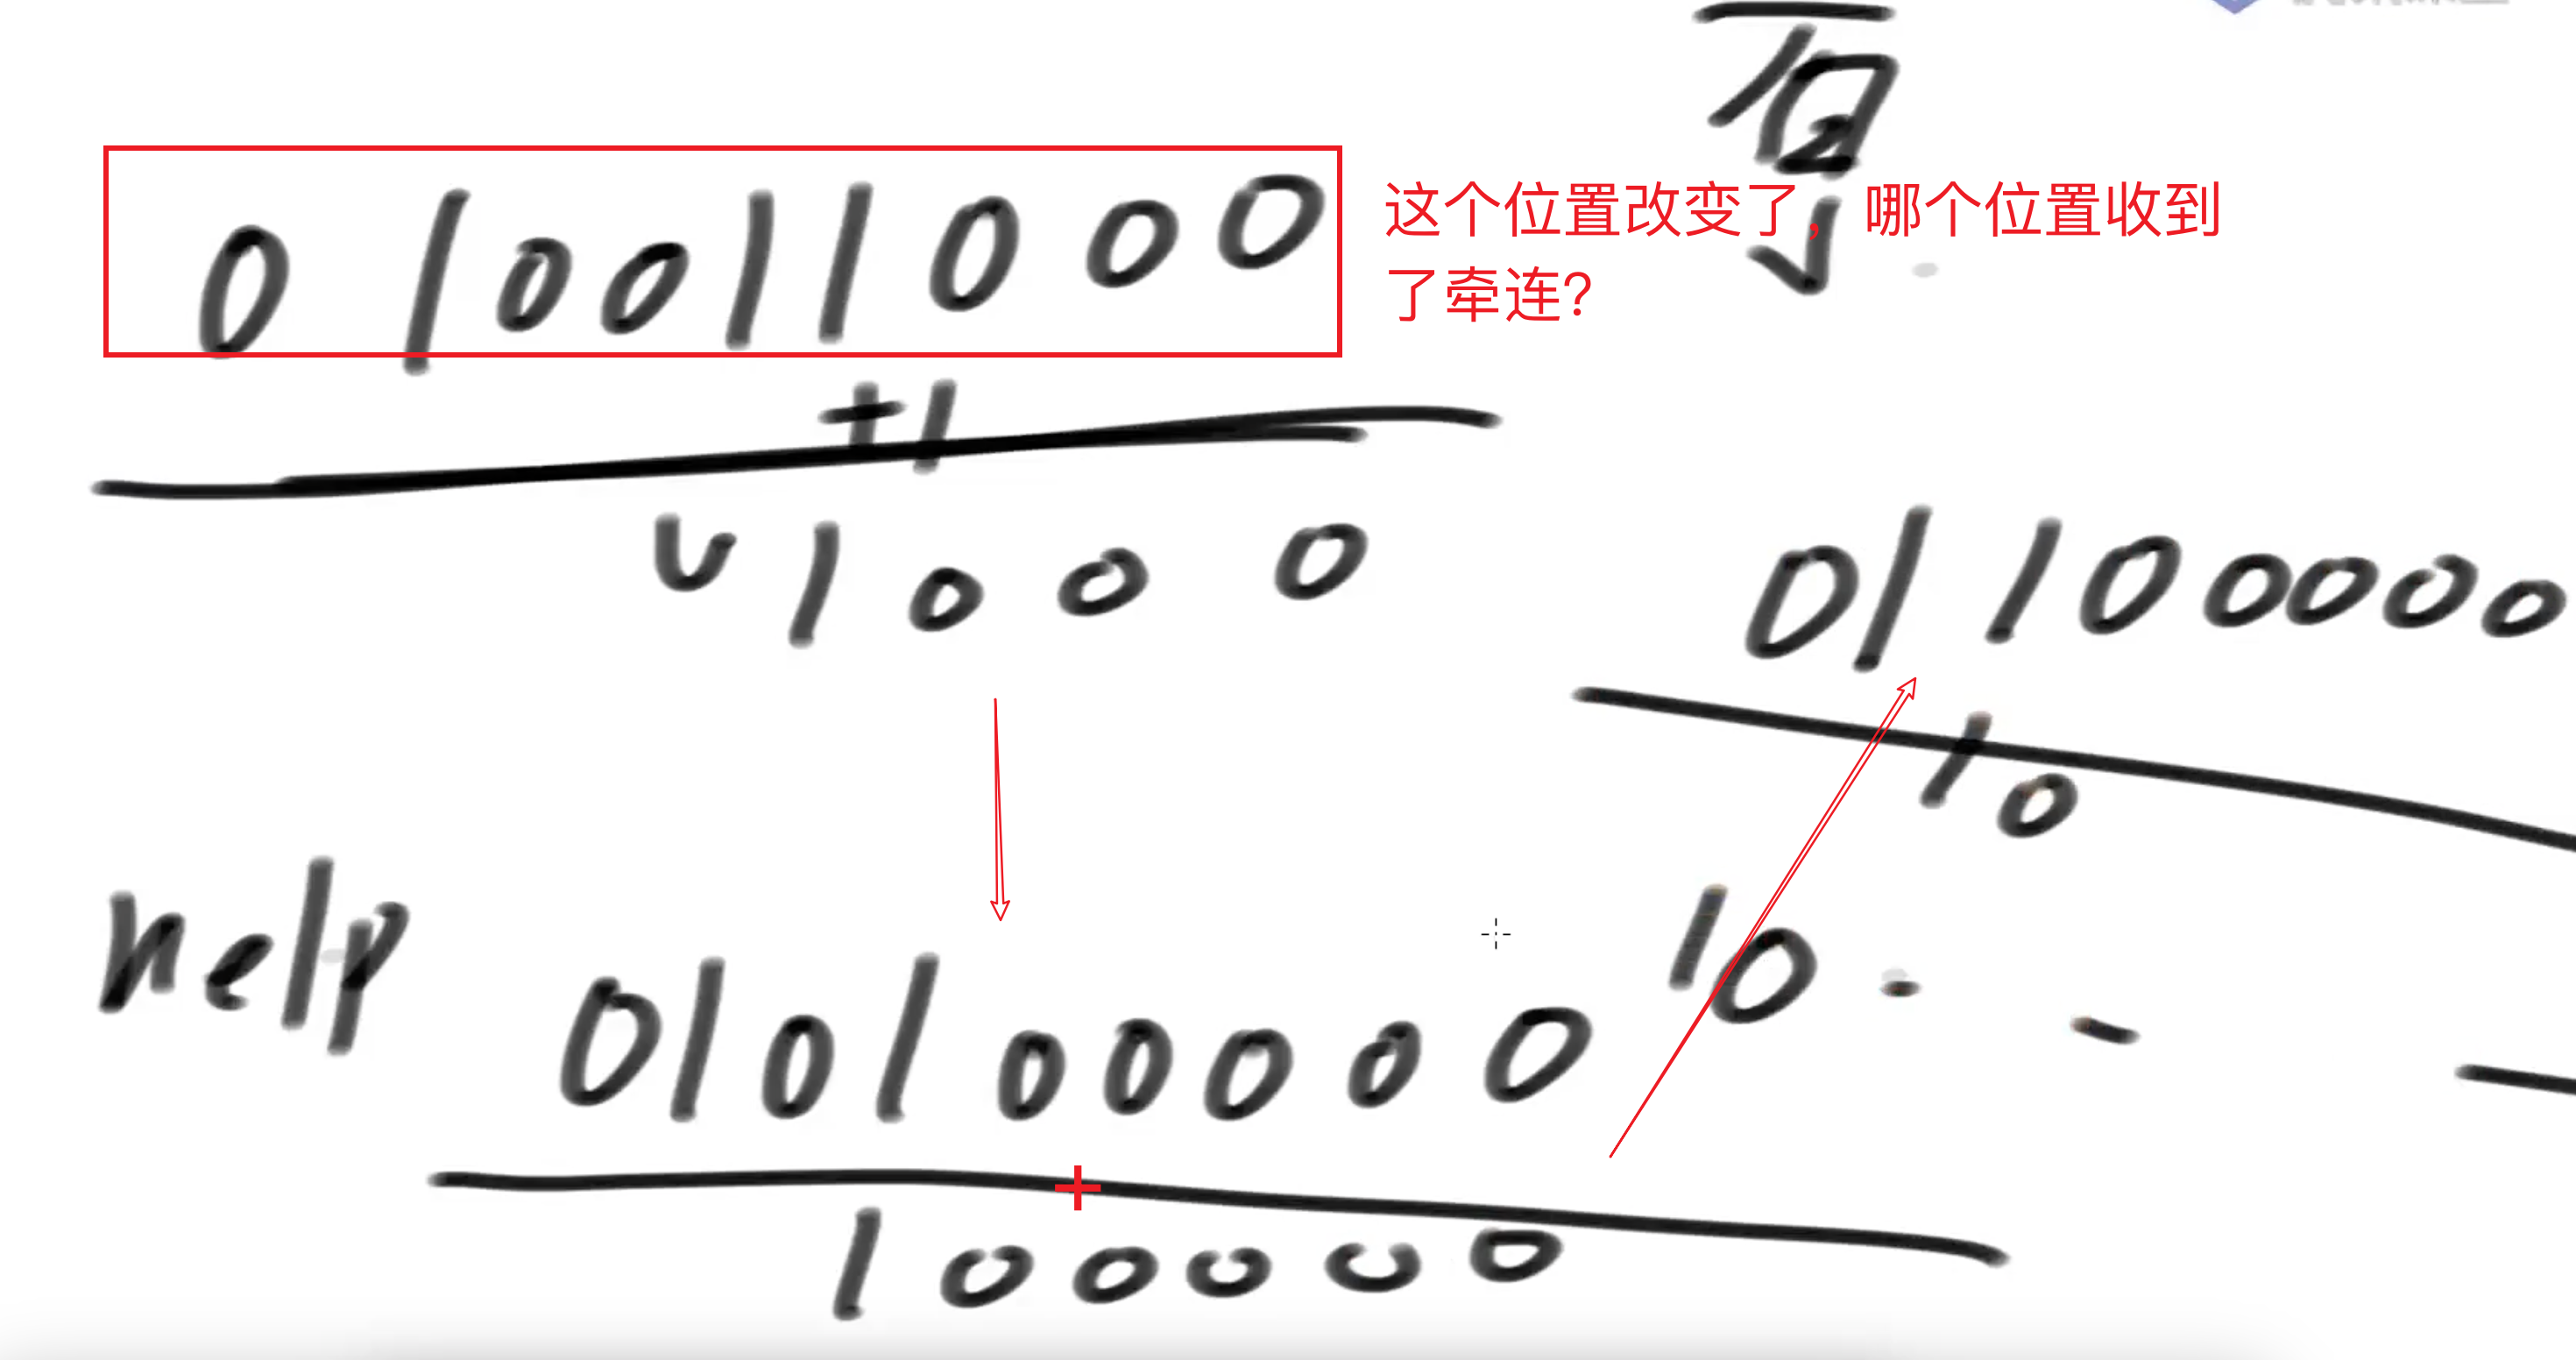 010011000
这个位置改变了，哪个位置收到
了牵连？
+1
1000
01100000
10
help
010100000
10
100000